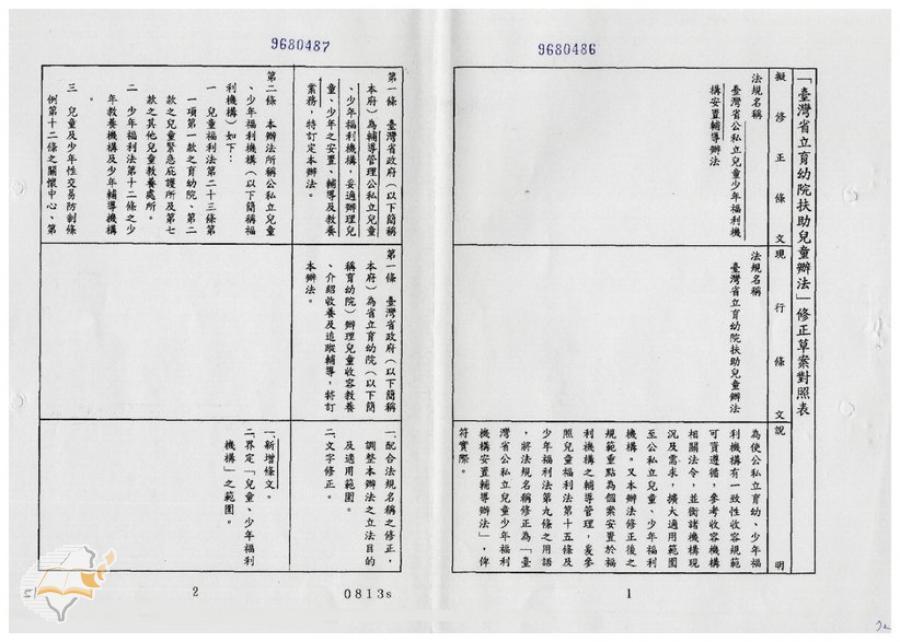 9680486
「臺灣省立育幼院扶助兒童辦法」修正草案對照表
擬修正條文
現行條文
說明
法規名稱
臺灣省公私立兒童少年福利機
構安置輔導辦法
法規名稱
臺灣省立育幼院扶助兒童辦法
為使公私立育幼、少年福
利機構有一致性收容規範
可資遵循，參考收容機構
相關法令，並衡諸機構現
況及需求，擴大適用範圍
至公私立兒童、少年福利
機構。又本辦法修正後之
規範重點為個案安置於福
利機構之輔導管理，爰參
照兒童福利法第十五條及
少年福利法第九條之用語
，將法規名稱修正為「臺
灣省公私立兒童少年福利
機構安置輔導辦法」，俾
符實際。
1
9680487
第一條　臺灣省政府（以下簡稱
本府）為輔導管理公私立兒童
、少年福利機構，妥適辦理兒
童、少年之安置、輔導及教養
業務，特訂定本辦法。
第一條　臺灣省政府（以下簡稱
本府）為省立育幼院（以下簡
稱育幼院）辦理兒童收容教養
、介紹收養及追蹤輔導，特訂
本辦法。
一、配合法規名稱之修正，
調整本辦法之立法目的
及適用範圍。
二、文字修正。
第二條　本辦法所稱公私立兒童
、少年福利機構（以下簡稱福
利機構）如下：
一　兒童福利法第二十三條第
一項第一款之育幼院、第二
款之兒童緊急庇護所及第七
款之其他兒童教養處所。
二　少年福利法第十二條之少
年教養機構及少年輔導機構
。
三　兒童及少年性交易防制條
例第十二條之關懷中心、第
一、新增條文。
二、界定「兒童、少年福利
機構」之範圍。
2
0813s